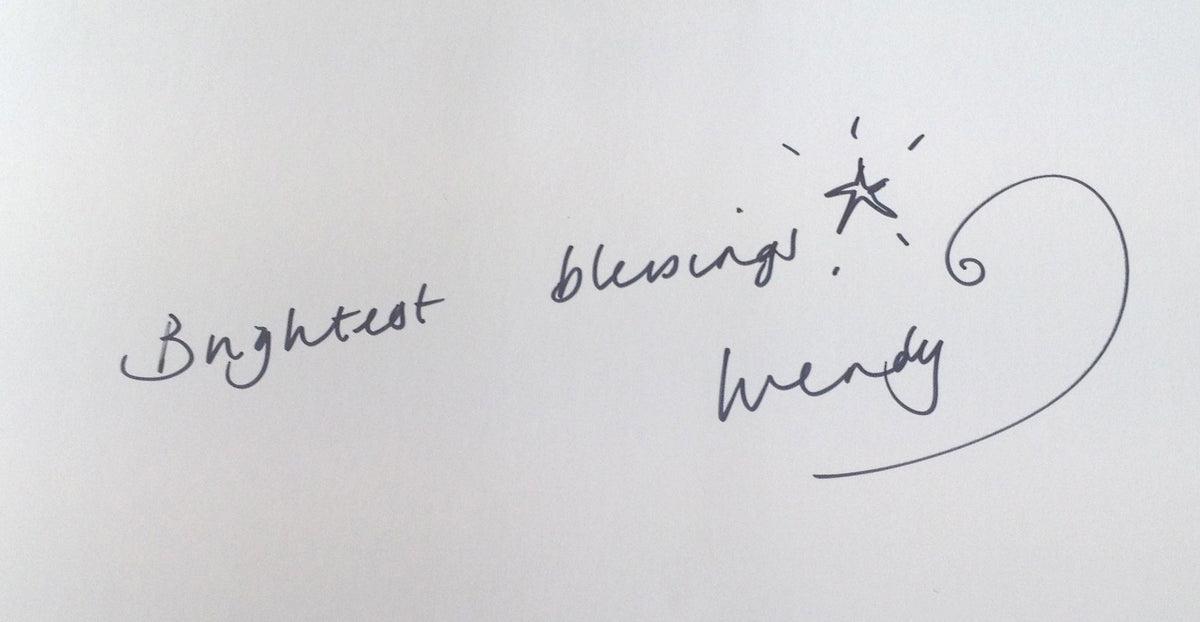 Brightest blessings.
Wendy